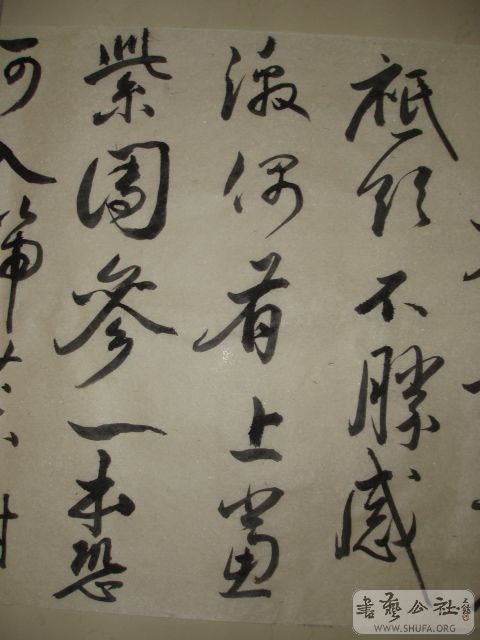 祗領不勝感
激偶有上黨
紫團參一本恐
可入
書藝公社
WWW.SHUFA.ORG